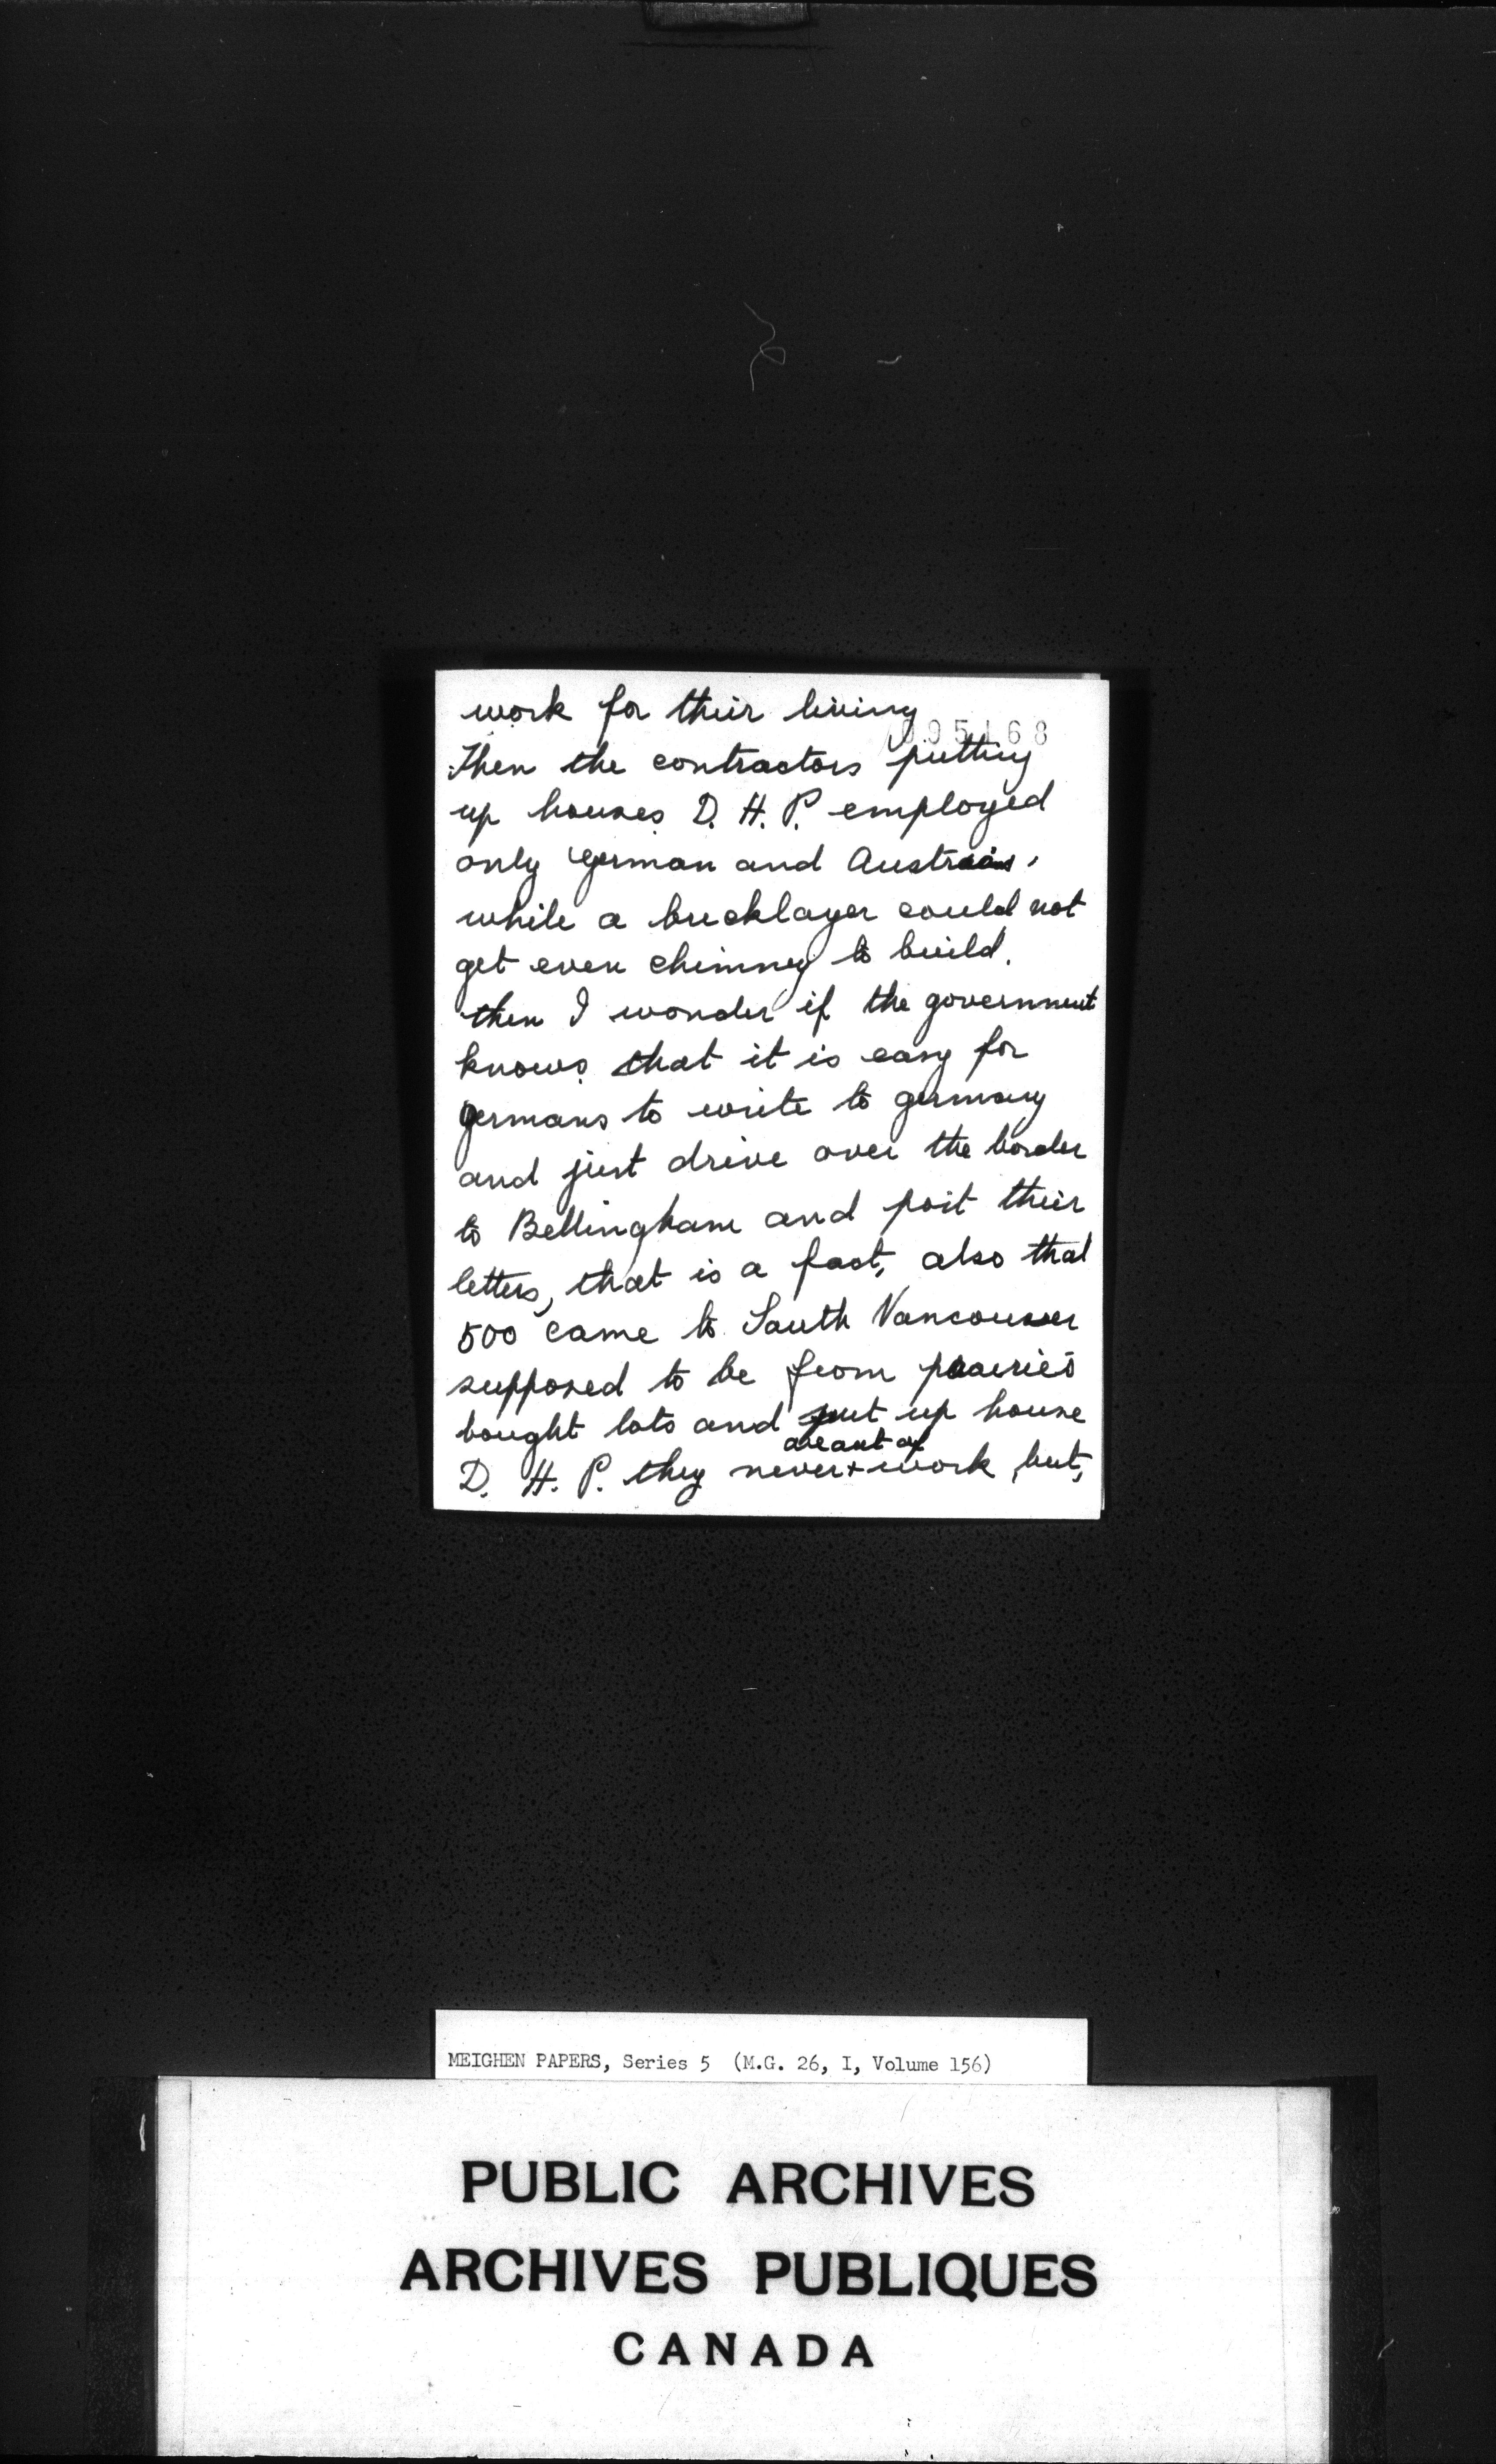 work for their living
095168
Then the contractors putting
up houses D. H. P. employed
only German and Austrians,
while a bricklayer could not
get even chimney to build.
then I wonder if the government
knows that it is easy for
germans to write to germany
and just drive over the border
to Bellingham and post their
letters, that is a fact, also that
500 came to South Vancouver
supposed to be from prairies
bought lots and put up house
D. H. P. they never + work, but,
MEIGHEN PAPERS, Series 5 (M.G. 26, I, Volume 156)
PUBLIC ARCHIVES
ARCHIVES PUBLIQUES
CANADA